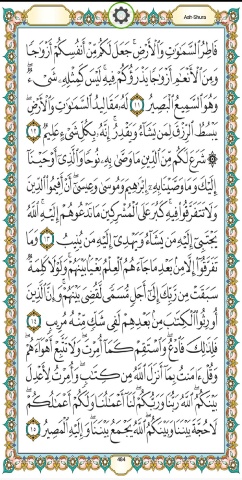 Ash Shura
فَاطِرُ ٱلسَّمَـٰوَٰتِ وَٱلْأَرْضِ ۚ جَعَلَ لَكُم مِّنْ أَنفُسِكُمْ أَزْوَٰجًا
وَمِنَ ٱلْأَنْعَـٰمِ أَزْوَٰجًا ۖ يَذْرَؤُكُمْ فِيهِ ۚ لَيْسَ كَمِثْلِهِۦ شَىْءٌ ۖ
وَهُوَ ٱلسَّمِيعُ ٱلْبَصِيرُ ١١ لَهُۥ مَقَالِيدُ ٱلسَّمَـٰوَٰتِ وَٱلْأَرْضِ ۖ
يَبْسُطُ ٱلرِّزْقَ لِمَن يَشَآءُ وَيَقْدِرُ ۚ إِنَّهُۥ بِكُلِّ شَىْءٍ عَلِيمٌ ١٢
۞ شَرَعَ لَكُم مِّنَ ٱلدِّينِ مَا وَصَّىٰ بِهِۦ نُوحًا وَٱلَّذِىٓ أَوْحَيْنَآ
إِلَيْكَ وَمَا وَصَّيْنَا بِهِۦٓ إِبْرَٰهِيمَ وَمُوسَىٰ وَعِيسَىٰٓ ۖ أَنْ أَقِيمُوا۟ ٱلدِّينَ
وَلَا تَتَفَرَّقُوا۟ فِيهِ ۚ كَبُرَ عَلَى ٱلْمُشْرِكِينَ مَا تَدْعُوهُمْ إِلَيْهِ ۚ ٱللَّهُ
يَجْتَبِىٓ إِلَيْهِ مَن يَشَآءُ وَيَهْدِىٓ إِلَيْهِ مَن يُنِيبُ ١٣ وَمَا
تَفَرَّقُوٓا۟ إِلَّا مِنۢ بَعْدِ مَا جَآءَهُمُ ٱلْعِلْمُ بَغْيًۢا بَيْنَهُمْ ۚ وَلَوْلَا كَلِمَةٌ
سَبَقَتْ مِن رَّبِّكَ إِلَىٰٓ أَجَلٍ مُّسَمًّى لَّقُضِىَ بَيْنَهُمْ ۚ وَإِنَّ ٱلَّذِينَ
أُورِثُوا۟ ٱلْكِتَـٰبَ مِنۢ بَعْدِهِمْ لَفِى شَكٍّ مِّنْهُ مُرِيبٍ ١٤
فَلِذَٰلِكَ فَٱدْعُ ۖ وَٱسْتَقِمْ كَمَآ أُمِرْتَ ۖ وَلَا تَتَّبِعْ أَهْوَآءَهُمْ ۖ
وَقُلْ ءَامَنتُ بِمَآ أَنزَلَ ٱللَّهُ مِن كِتَـٰبٍ ۖ وَأُمِرْتُ لِأَعْدِلَ
بَيْنَكُمُ ۖ ٱللَّهُ رَبُّنَا وَرَبُّكُمْ ۖ لَنَآ أَعْمَـٰلُنَا وَلَكُمْ أَعْمَـٰلُكُمْ ۖ
لَا حُجَّةَ بَيْنَنَا وَبَيْنَكُمُ ۖ ٱللَّهُ يَجْمَعُ بَيْنَنَا ۖ وَإِلَيْهِ ٱلْمَصِيرُ ١٥
484